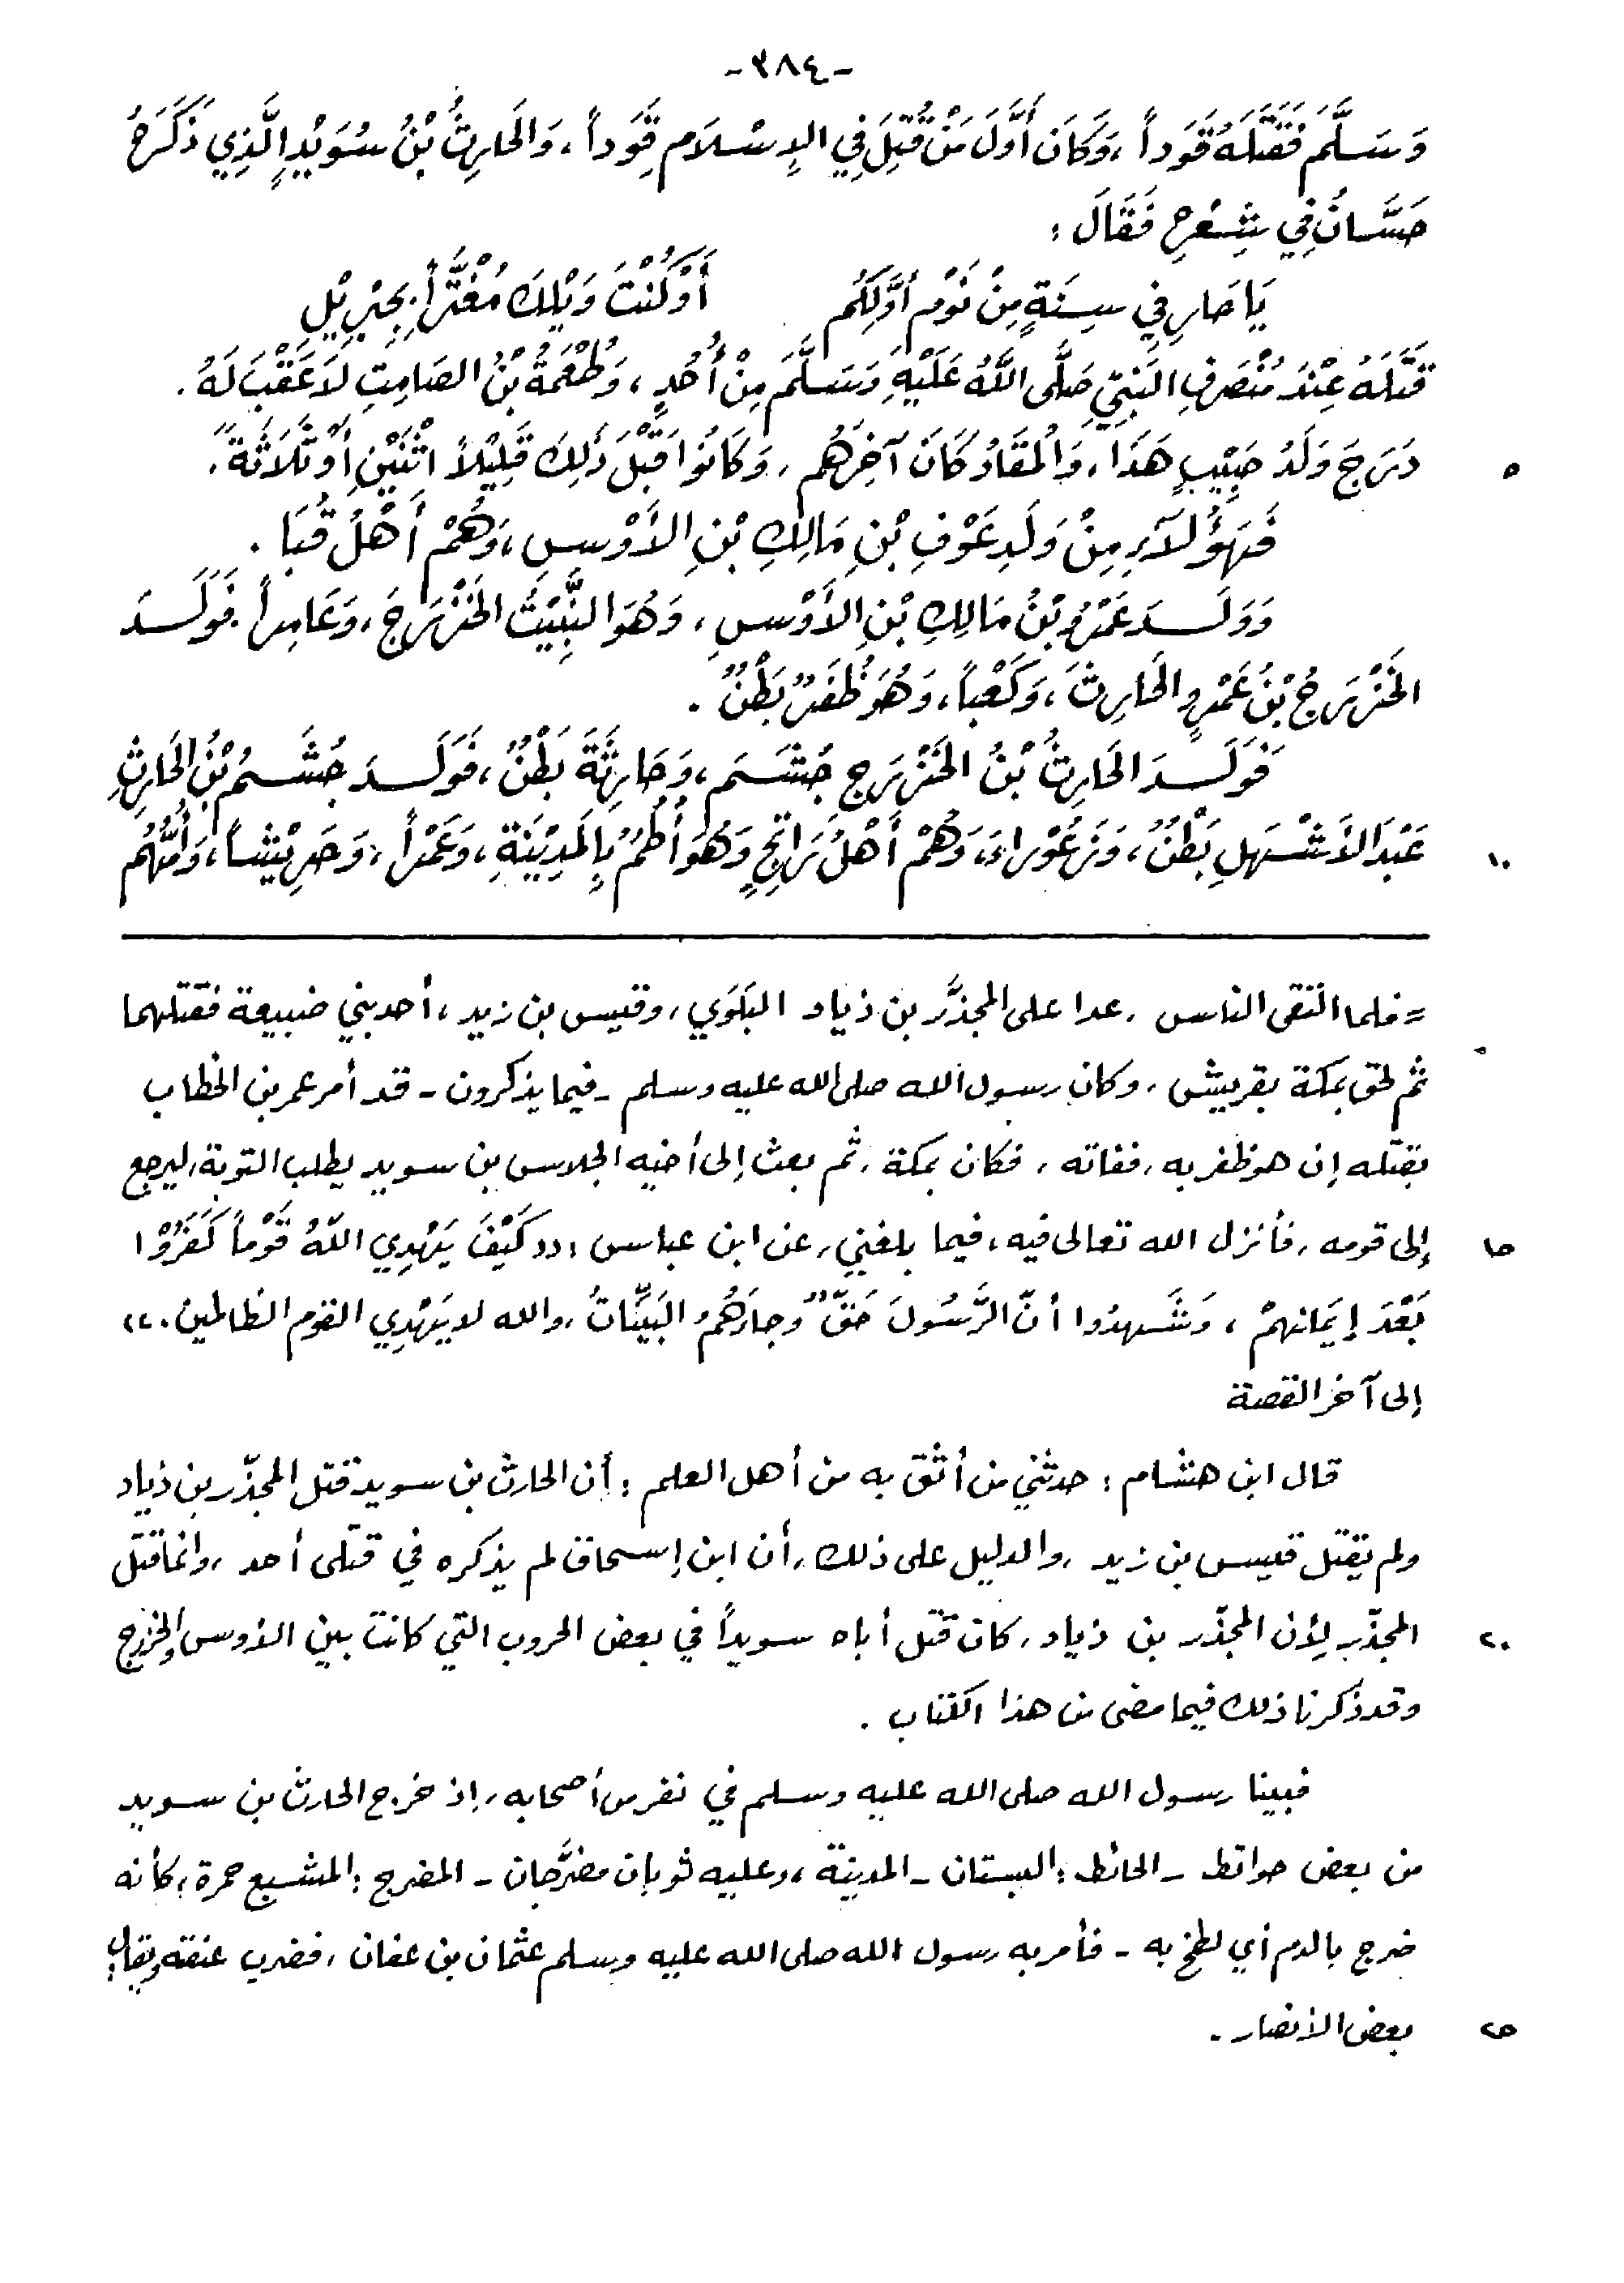 -٣٨٤-
وَسَلَّمَ فَقَتَلَهُ قَوَداً، وَكَانَ أَوَّلَ مَنْ قُتِلَ فِي الإِسْلاَمِ قَوَداً، وَالحَارِثُ بْنُ سُوَيْدٍ الَّذِي ذَكَرَهُ
حَسَّانُ فِي شِعْرِهِ فَقَالَ:
يَا حَارِ فِي سِنَةٍ مِنْ نَوْمِ أَوَّلِكُم أَوْ كُنْتَ وَيْلَكَ مُغْتَرّاً بِجِبْرِيْلِ
قَتَلَهُ عِنْدَ مُنْصَرَفِ النَبِيِّ صَلَّى اللَّهُ عَلَيْهِ وَسَلَّمَ مِنْ أُحُدٍ، وَطُعْمَةُ بْنُ الصَامِتِ لاَ عَقْبَ لَهُ.
٥ دَرَجَ وَلَدُ حَبِيْبٍ هَذَا، وَالمَقَّادُ كَانَ آخِرَهُم، وَكَانُوا قَبْلَ ذَلِكَ قَلِيْلاً اثْنَيْنِ أَوْ ثَلاَثَةً.
فَهَؤُلاَءِ مِنْ وَلَدِ عَوْفِ بْنِ مَالِكِ بْنِ الأَوْسِ، وَهُمْ أَهْلُ قُبَا.
وَوَلَدَ عَمْرُو بْنُ مَالِكِ بْنِ الأَوْسِ، وَهُوَ النَّبِيْتُ الخَزْرَجَ، وَعَامِراً. فَوَلَدَ
الخَزْرَجُ بْنُ عَمْرٍو الحَارِثَ، وَكَعْباً، وَهُوَ ظُفَرٌ بَطْنٌ.
فَوَلَدَ الحَارِثُ بْنُ الخَزْرَجِ جُشَمَ، وَحَارِثَةَ بَطْنٌ، فَوَلَدَ جُشَمُ بْنُ الحَارِثِ
١٠ عَبْدَ الأَشْهَلِ بَطْنٌ، وَزَعُوْرَاءَ، وَهُمْ أَهْلُ رَاتِجٍ وَهُوَ أُطُمٌ بِالمَدِيْنَةِ، وَعَمْراً، وَحَرِيْشاً، وَأُمُّهُم
= فلما التقى الناس، عدا على المجذَّر بن ذياد البَلَوَي، وقيس بن زيد، أحد بني ضبيعة فقتلهما
ثم لحق بمكة بقريش، وكان رسول الله صلى الله عليه وسلم - فيما يذكرون - قد أمر عمر بن الخطاب
بقتله إن هو ظفر به، ففاته، فكان بمكة، ثم بعث إلى أخيه الجلاس بن سويد يطلب التوبة، ليرجع
١٥ إلى قومه، فأنزل الله تعالى فيه، فيما بلغني، عن ابن عباس: «كَيْفَ يَهْدِي اللهُ قَوْماً كَفَرُوْا
بَعْدَ إيَمَانِهمْ، وَشَهِدُوا أنّ الرَّسُولَ حَقٌّ وجاءَهُمُ البَيِّنَاتُ، والله لا يَهْدِي القوم الظالمين.»
إلى آخر القصة
قال ابن هشام: حدثني من أثق به من أهل العلم: أن الحارث بن سويد قتل المجذّر بن ذياد
ولم يقتل قيس بن زيد، والدليل على ذلك، أن ابن إسحاق لم يذكره في قتلى أحد، وانما قتل
٢٠ المجذّر لِأن المجذّر بن ذياد، كان قتل أباه سويداً في بعض الحروب التي كانت بين الأوس والخزرج
وقد ذكرنا ذلك فيما مضى من هذا الكتاب.
فبينا رسول الله صلى الله عليه وسلم في نفر من أصحابه، إذ خرج الحارث بن سويد
من بعض حوائط - الحائط: البستان - المدينة، وعليه ثوبان مضرَّجان - المضرج: المشبع حمرة، كأنه
ضرج بالدم أي لطخ به - فأمر به رسول الله صلى الله عليه وسلم عثمان بن عفان، فضرب عنقه ويقال:
٢٥ بعض الأنصار.